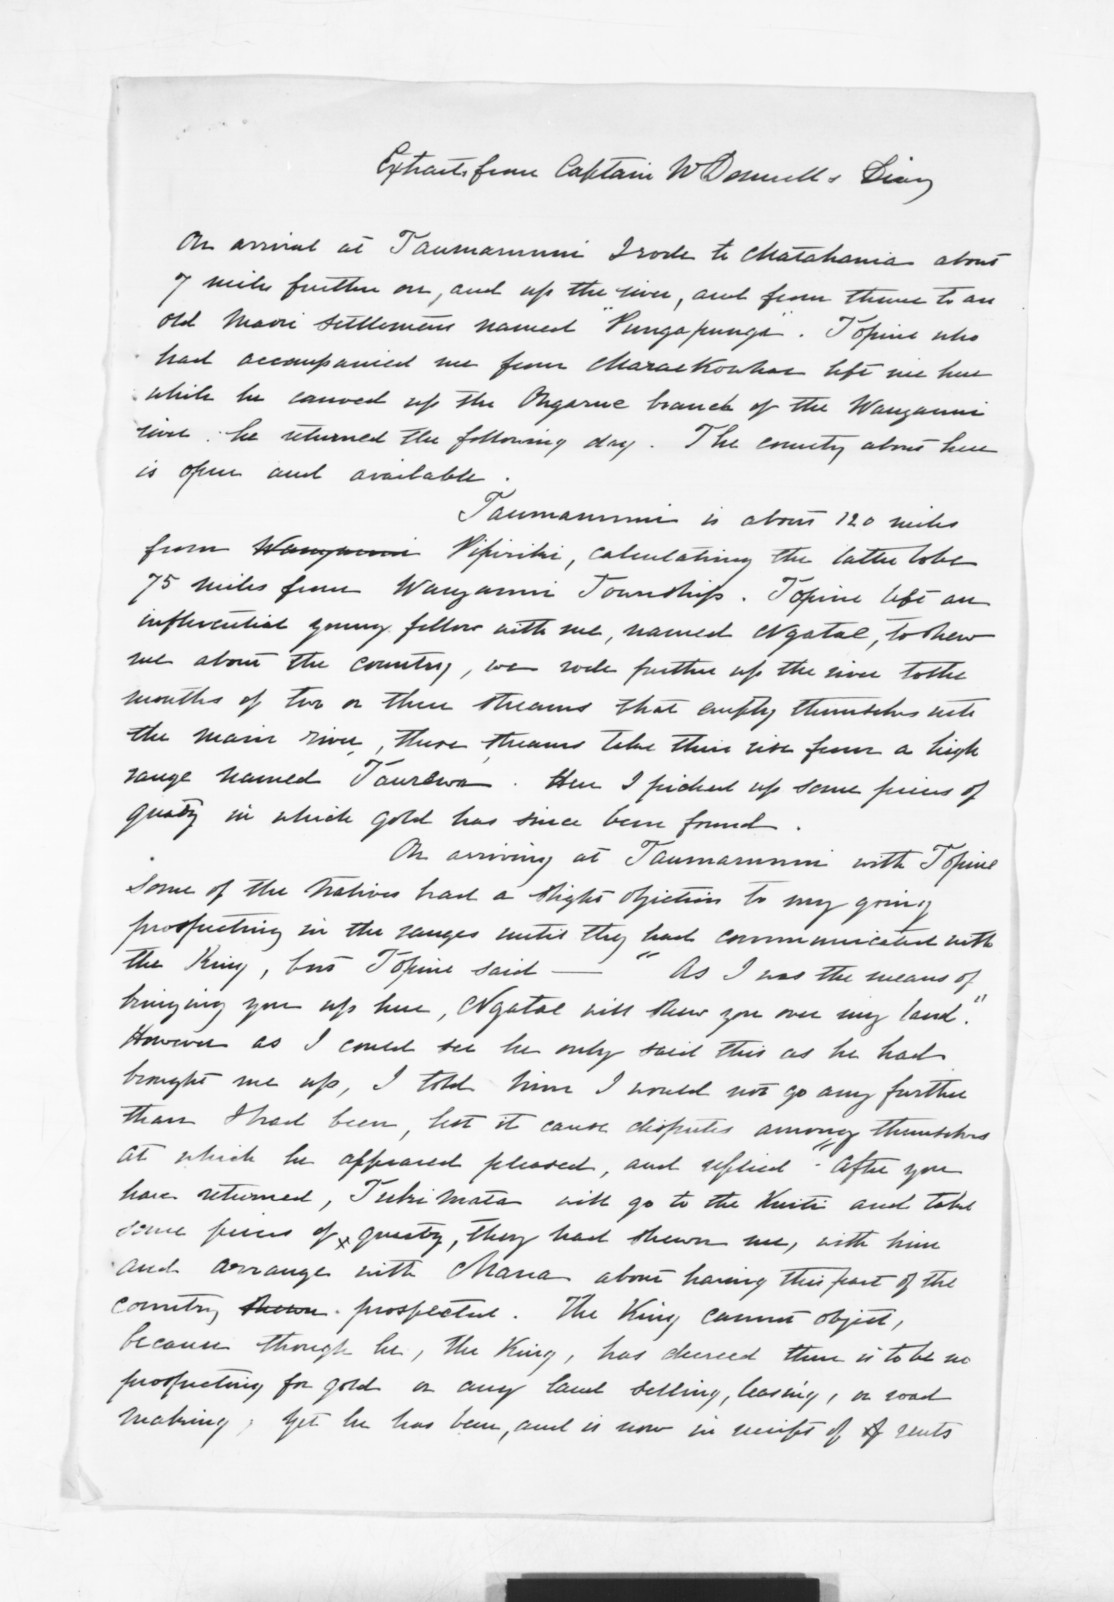 Extracts from Captain McDonnell's Diary
On arrival at Taumaranui I rode to Matahania about
7 miles further on, and up the river, and from thence to an
old Maori settlement named "Pungapunga". Topine who
had accompanied me from Maraekowhai left me here
while he canoed up the Ongarue branch of the Wanganui
river. he returned the following day. The country about here
is open and available.
Taumaranui is about 120 miles
from Wanganui Pipiriki, calculating the latter to be
75 miles from Wanganui Township. Topine left an
influential young fellow with me, named Ngatae, to shew
me about the country, we rode further up the river to the
mouths of two or three streams that empty themselves into
the main river, these streams take their rise from a high
range named Taurewa. Here I picked up some pieces of
quartz in which gold has since been found.
On arriving at Taumaranui with Topine
some of the Natives had a slight objection to my going
prospecting in the ranges until they had communicated with
the King, but Topine said — "As I was the means of
bringing you up here, Ngatae will shew you over my land."
However as I could see he only said this as he had
brought me up, I told him I would not go any further
than I had been, lest it cause disputes among themselves
at which he appeared pleased, and replied "After you
have returned, Tuki Mata will go to the Kuiti and take
some pieces of x quartz, they had shewn me, with him
and arrange with Mana about having this part of the
country shewn prospected. The King cannot object,
because though he, the King, has decreed there is to be no
prospecting for gold or any land selling, leasing, or road
making, yet he has been, and is now in receipt of of rents